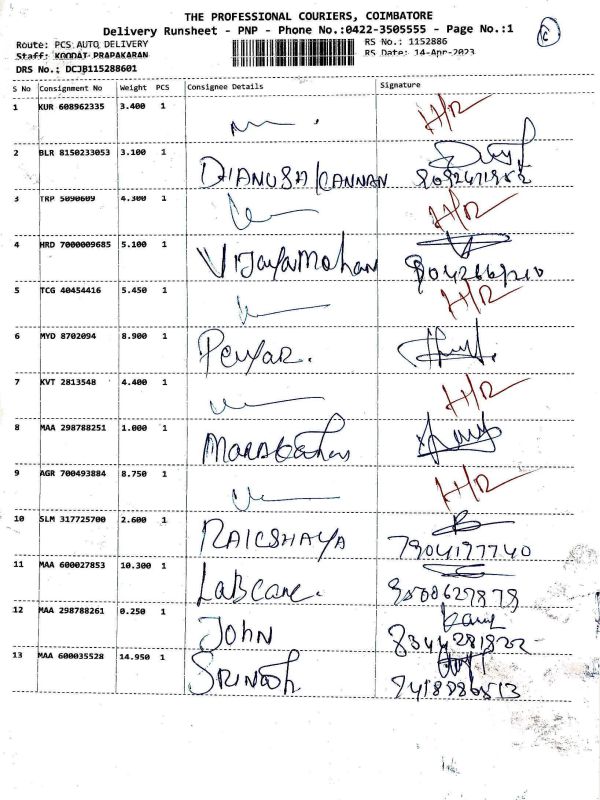 THE PROFESSIONAL COURIERS, COIMBATORE
Delivery Runsheet - PNP - Phone No.:0422-3505555 - Page No.:1
Route: PCS AUTO DELIVERY RS No.: 1152886
Staff: KOODAT PRAPAKARAN RS Date: 14-Apr-2023
DRS No.; DCJB115288601
S No Consignment No Weight PCS Consignee Details Signature
1 KUR 608962335 3.400 1 H/R
2 BLR 8150233053 3.100 1 DHANUSH KANNAN
3 TRP 5090609 4.300 1 H/R
4 HRD 7000009685 5.100 1 VIJayaMohan
5 TCG 40454416 5.450 1 H/R
6 MYD 8702094 8.900 1
7 KVT 2813548 4.400 1 H/R
8 MAA 298788251 1.000 1
9 AGR 700493884 8.750 1 H/R
10 SLM 317725700 2.600 1 7904177740
11 MAA 600027853 10.300 1 LabCare. 9500629878
12 MAA 298788261 0.250 1 JOHN
13 MAA 600035528 14.950 1